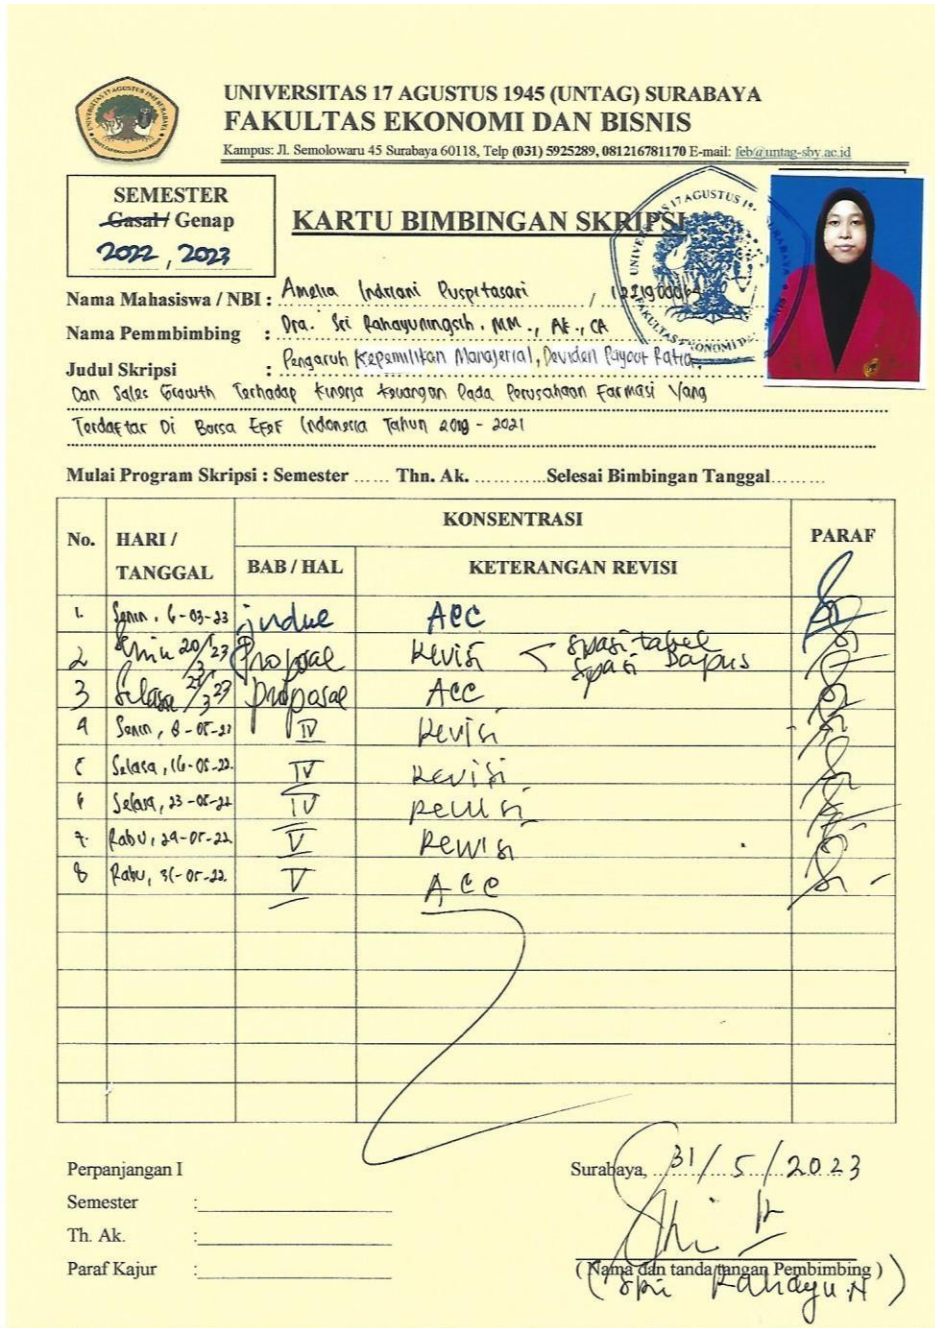 UNIVERSITAS 17 AGUSTUS 1945 (UNTAG) SURABAYA
FAKULTAS EKONOMI DAN BISNIS
Kampus: Jl. Semolowaru 45 Surabaya 60118, Telp (031) 5925289, 081216781170 E-mail: feb@untag-sby.ac.id
SEMESTER
Gasal / Genap
2022, 2023
KARTU BIMBINGAN SKRIPSI
Nama Mahasiswa / NBI : Amelia Indriani Puspitasari /
Nama Pemmbimbing : Dra. Sri Rahayuningsih, MM., Ak., CA
Judul Skripsi : Pengaruh Kepemilikan Manajerial, Deviden Payout Ratio,
Dan Sales Growth Terhadap Kinerja Keuangan Pada Perusahaan Farmasi Yang
Terdaftar Di Bursa Efek Indonesia Tahun 2018 - 2021
Mulai Program Skripsi : Semester ...... Thn. Ak. ............Selesai Bimbingan Tanggal.........
No. HARI / TANGGAL KONSENTRASI PARAF
BAB / HAL KETERANGAN REVISI
1. Senin, 6-03-23 ACC
2 20/3 23 Proposal Revisi < spasi tabel
spasi Dapus
3 Selasa 3 23 proposal ACC
4 Senin, 8-05-23 IV Revisi
5 Selasa, 16-05-22. IV Revisi
6 Selasa, 23-05-22 IV Revisi
7. Rabu, 29-05-22 V Revisi
8 Rabu, 31-05-22 V ACC
Perpanjangan I
Semester :
Th. Ak. :
Paraf Kajur :
Surabaya, 31/5/2023
( Nama dan tanda tangan Pembimbing )
(Sri Rahayu N)